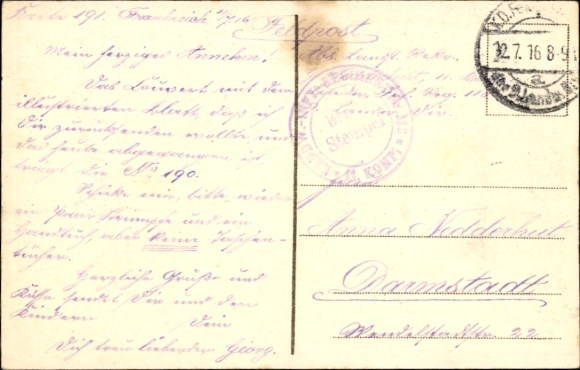 Karte 191. Frankreich 1/7 16
Mein herziges Annchen!
Das Couvert mit dem
illustrierten Blatt, daß ich
Dir zurücksenden wollte und
das heute abgegangen ist
tragt die No 190.
Schicke mir, bitte, wieder
ein Paar Strümpfe und ein
Handtuch, aber keine Taschen-
tücher.
Herzliche Grüße und
Küsse sendet Dir und den
Kindern Dein
Dich treu liebender Georg.
Feldpost
Abs. Landst. Rekr.
Inf. Reg. 11
Lander. Div.
Stempel
KOMP.
2.7.16 8-9
Anna Nedderhut
Darmstadt
Wendelstadtstr. 22